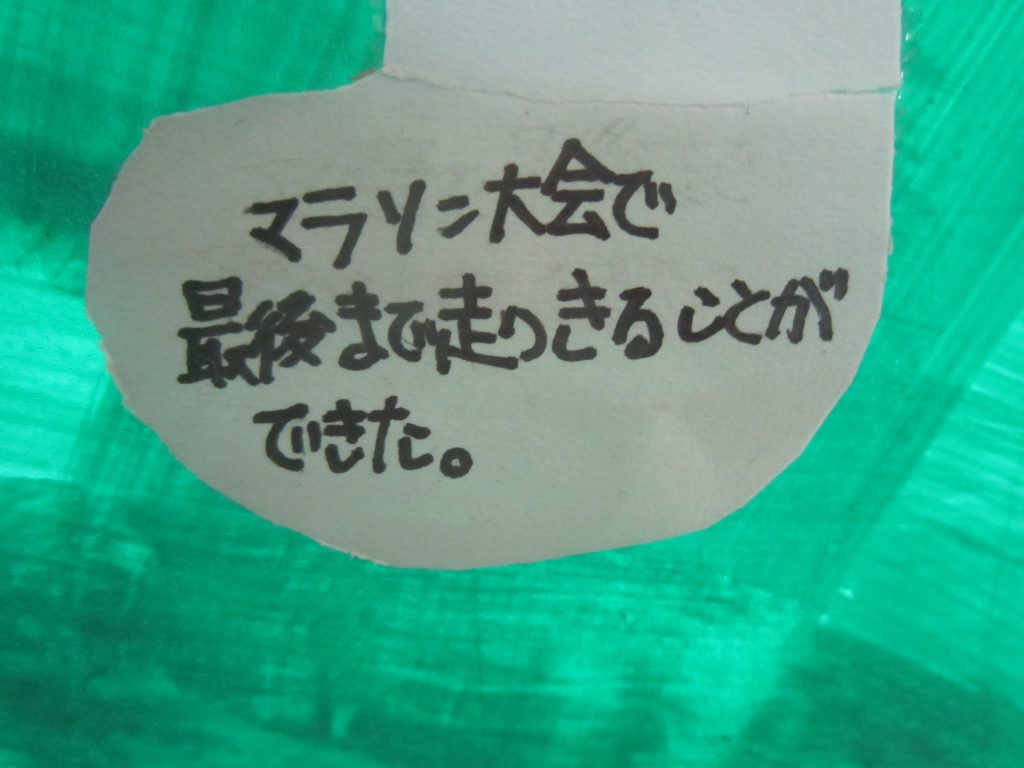 マラソン大会で
最後まで走りきることが
できた。